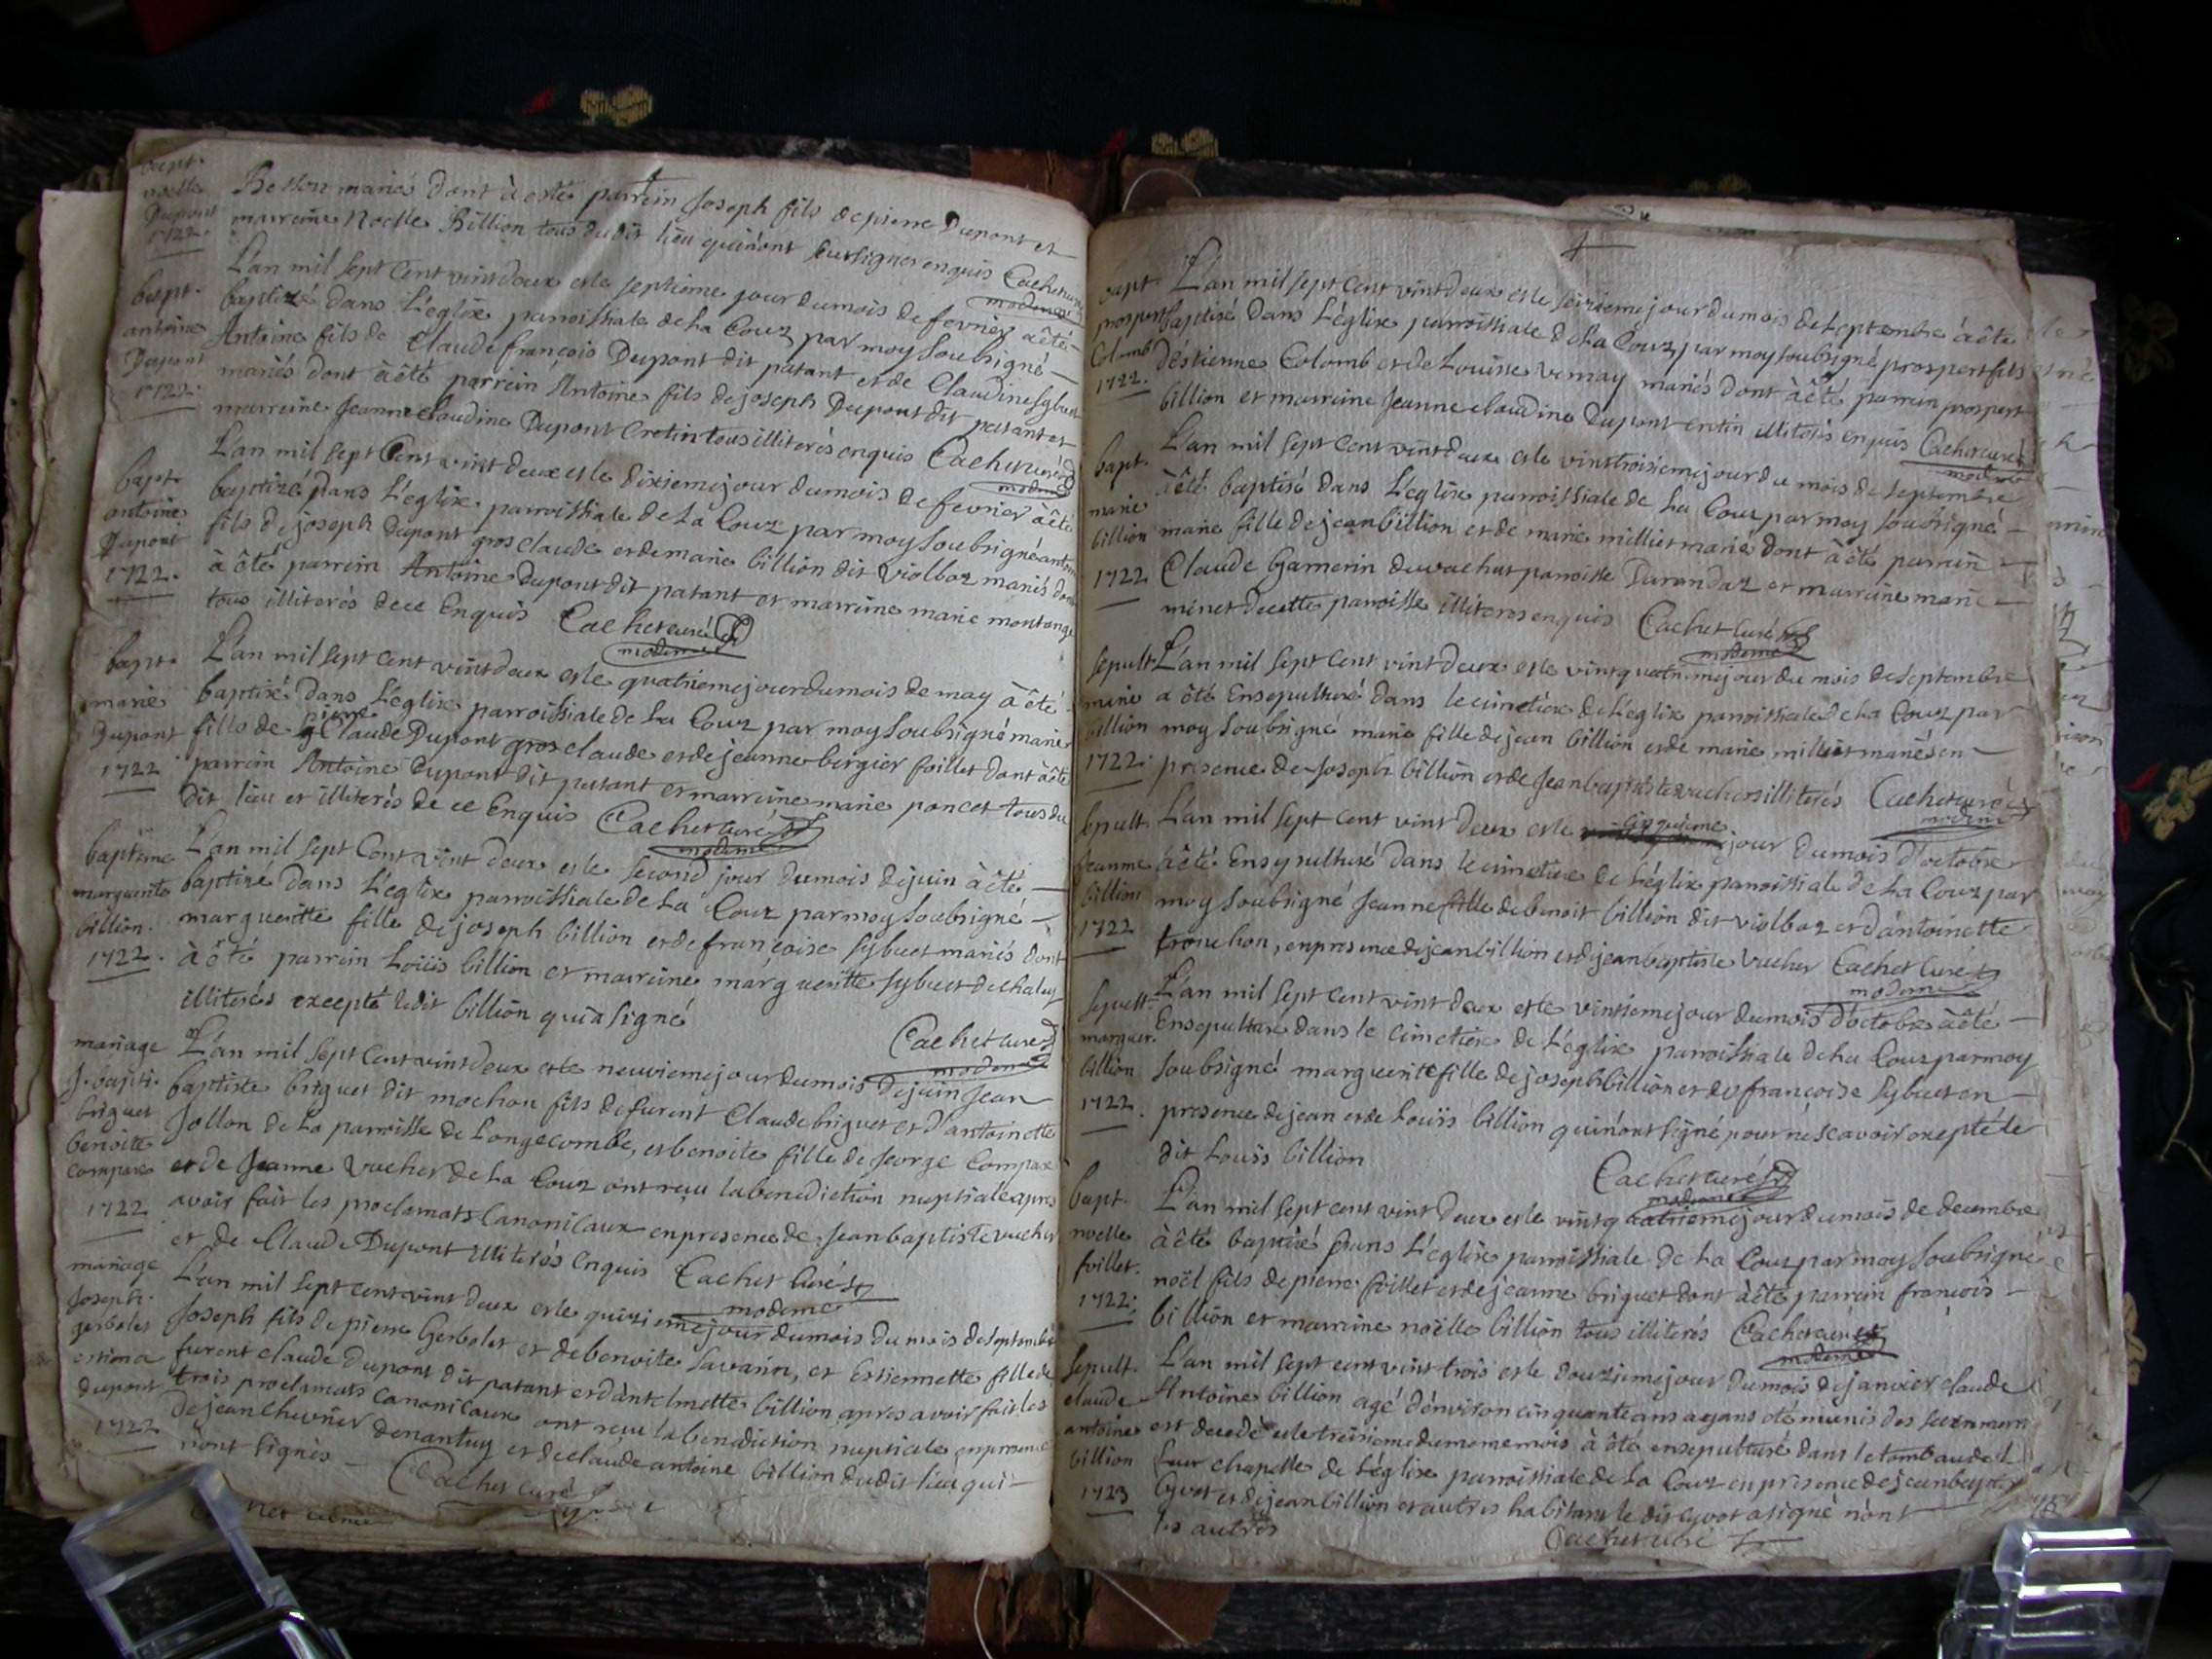 bapt.
noelle
Dupont
1722.
Besson mariés dont à esté parrein Joseph fils de pierre Dupont et
marreine Noelle Billion tous dudit lieu qui n'ont sceu signer enquis Cachet curé
moderne
bapt.
antoine
Dupont
1722.
L'an mil sept cent vint deux et le septieme jour du mois de fevrier à été
baptizé dans L'église parroissiale de La Couz par moy soubsigné
Antoine fils de Claude françois Dupont dit patant et de Claudine Sybuet
mariés dont à été parrein Antoine fils de joseph Dupont dit patant et
marreine Jeanne claudine Dupont cretin tous illiterés enquis Cachet curé
moderne
bapt.
antoine
Dupont
1722.
L'an mil sept Cent vint deux et le dixieme jour du mois de fevrier à été
baptizé dans L'église parroissiale de La Couz par moy soubsigné antoine
fils de joseph Dupont gros claude et de marie billion dit violbaz mariés dont
à été parrein Antoine Dupont dit patant et marreine marie montange
tous illiterés de ce Enquis Cachet curé
moderne
bapt.
marie
Dupont
1722
L'an mil sept cent vint deux et le quatrieme jour du mois de may à été
baptizé dans L'église parroissiale de La Couz par moy soubsigné marie
fille de pierre Claude Dupont gros claude et de jeanne bergier foillet dont à été
parrein Antoine Dupont dit patant et marreine marie poncet tous du
dit lieu et illiterés de ce Enquis Cachet curé
moderne
baptême
marguerite
billion.
1722.
L'an mil sept Cent vint deux et le second jour du mois de juin à été
baptizé dans L'église parroissiale de La Couz par moy soubsigné
margueritte fille de joseph billion et de françoise Sybuet mariés dont
à été parrein Loüis billion et marreine margueritte Sybuet de chaley
illiterés excepté ledit billion qui à signé
Cachet curé
moderne
mariage
J. bapti.
briguet
benoite
compare
1722
L'an mil sept cent vint deux et le neuvieme jour du mois de juin Jean
baptiste briguet dit mochon fils de furent Claude briguet et d'antoinette
Jollon de La parroisse de Longecombe, et benoite fille de George Compare
et de Jeanne Vucher de La Couz ont reçu la benediction nuptiale apres
avoir fait les proclamats Canonicaux en presence de Jean baptiste vucher
et de Claude Dupont illiterés enquis Cachet Curé
moderne
mariage
Joseph.
gerbolet
dupont
1722
L'an mil sept cent vint deux et le quinzieme jour du mois du mois de septembre
Joseph fils de pierre Gerbolet et de benoite Savarin, et Estiennette fille de
furent claude Dupont dit patant et d'antelmette billion apres avoir fait les
trois proclamats canonicaux ont reçu la benediction nuptiale en presence
de jean Chevrier de nantuy et de claude antoine billion dudit lieu qui
n'ont signés
Cachet curé
bapt.
prospert
Colomb
1722.
L'an mil sept Cent vint deux et le seizieme jour du mois de septembre à été
baptizé dans L'église parroissiale de La Couz par moy soubsigné prospert fils
d'estienne Colomb et de Louise vernay mariés dont à été parrein prospert
billion et marreine Jeanne claudine Dupont cretin illiterés enquis Cachet curé
moderne
bapt.
marie
billion
1722
L'an mil sept cent vint deux et le vint troisieme jour du mois de septembre
à été baptisé dans L'église parroissiale de La Couz par moy soubsigné
marie fille de jean billion et de marie milliet mariés dont à été parrein
Claude Gamerin du vachat parroisse Darandaz et marreine marie
minet de cette parroisse illiteres enquis Cachet curé
moderne
sepult.
marie
billion
1722.
L'an mil sept cent vint deux et le vint quatriemejour du mois de septembre
a été Ensepulturé dans le cimetiere de L'église parroissiale de La Couz par
moy soubsigné marie fille de jean billion et de marie milliet mariés en
presence de Joseph billion et de Jean baptiste vucher illiterés Cachet curé
moderne
sepult.
Jeanne
billion
1722
L'an mil sept cent vint deux et le cinquieme jour du mois d'octobre
à été Ensepulturé dans le cimetiere de L'église parroissiale de La Couz par
moy soubsigné Jeanne fille de benoit billion dit violbaz et d'antoinette
tronchon, en presence de jean billion et de jean baptiste Vucher Cachet curé
moderne
sepult.
marguer.
billion
1722.
L'an mil sept cent vint deux et le vintieme jour du mois d'octobre à été
Ensepulturé dans le cimetiere de L'église parroissiale de La Couz par moy
soubsigné marguerite fille de joseph billion et de françoise Sybuet en
presence de jean et de Loüis billion qui n'ont signé pour ne scavoir excepté le
dit Loüis billion
Cachet curé
moderne
bapt.
noelle
foillet.
1722.
L'an mil sept cent vint deux et le vint quatrieme jour du mois de decembre
à été baptizé dans L'église parroissiale de La Couz par moy soubsigné
noël fils de pierre foillet et de jeanne briguet dont à été parrein françois
billion et marreine noëlle billion tous illiterés Cachet curé
moderne
sepult.
claude
antoine
billion
1723
L'an mil sept cent vint trois et le douzieme jour du mois de janvier claude
Antoine billion agé d'environ cinquante ans ayans été munis des sacremens
est decedé et le treizieme du meme mois à été ensepulturé dans le tombau de
leur chapelle de L'église parroissiale de La Couz en presence de jean bapt.
Cyvot et de jean billion et autres habitans le dit cyvot a signé n'ont
les autres
Cachet curé